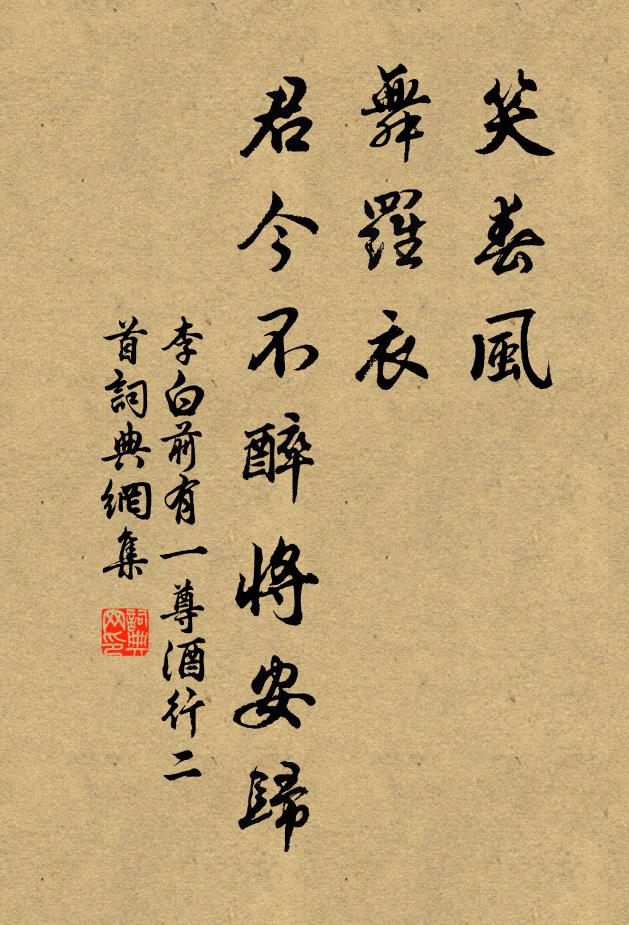 笑春風
舞羅衣
君今不醉將安歸
李白前有一尊酒行二
首詞典網集
詞典
网印